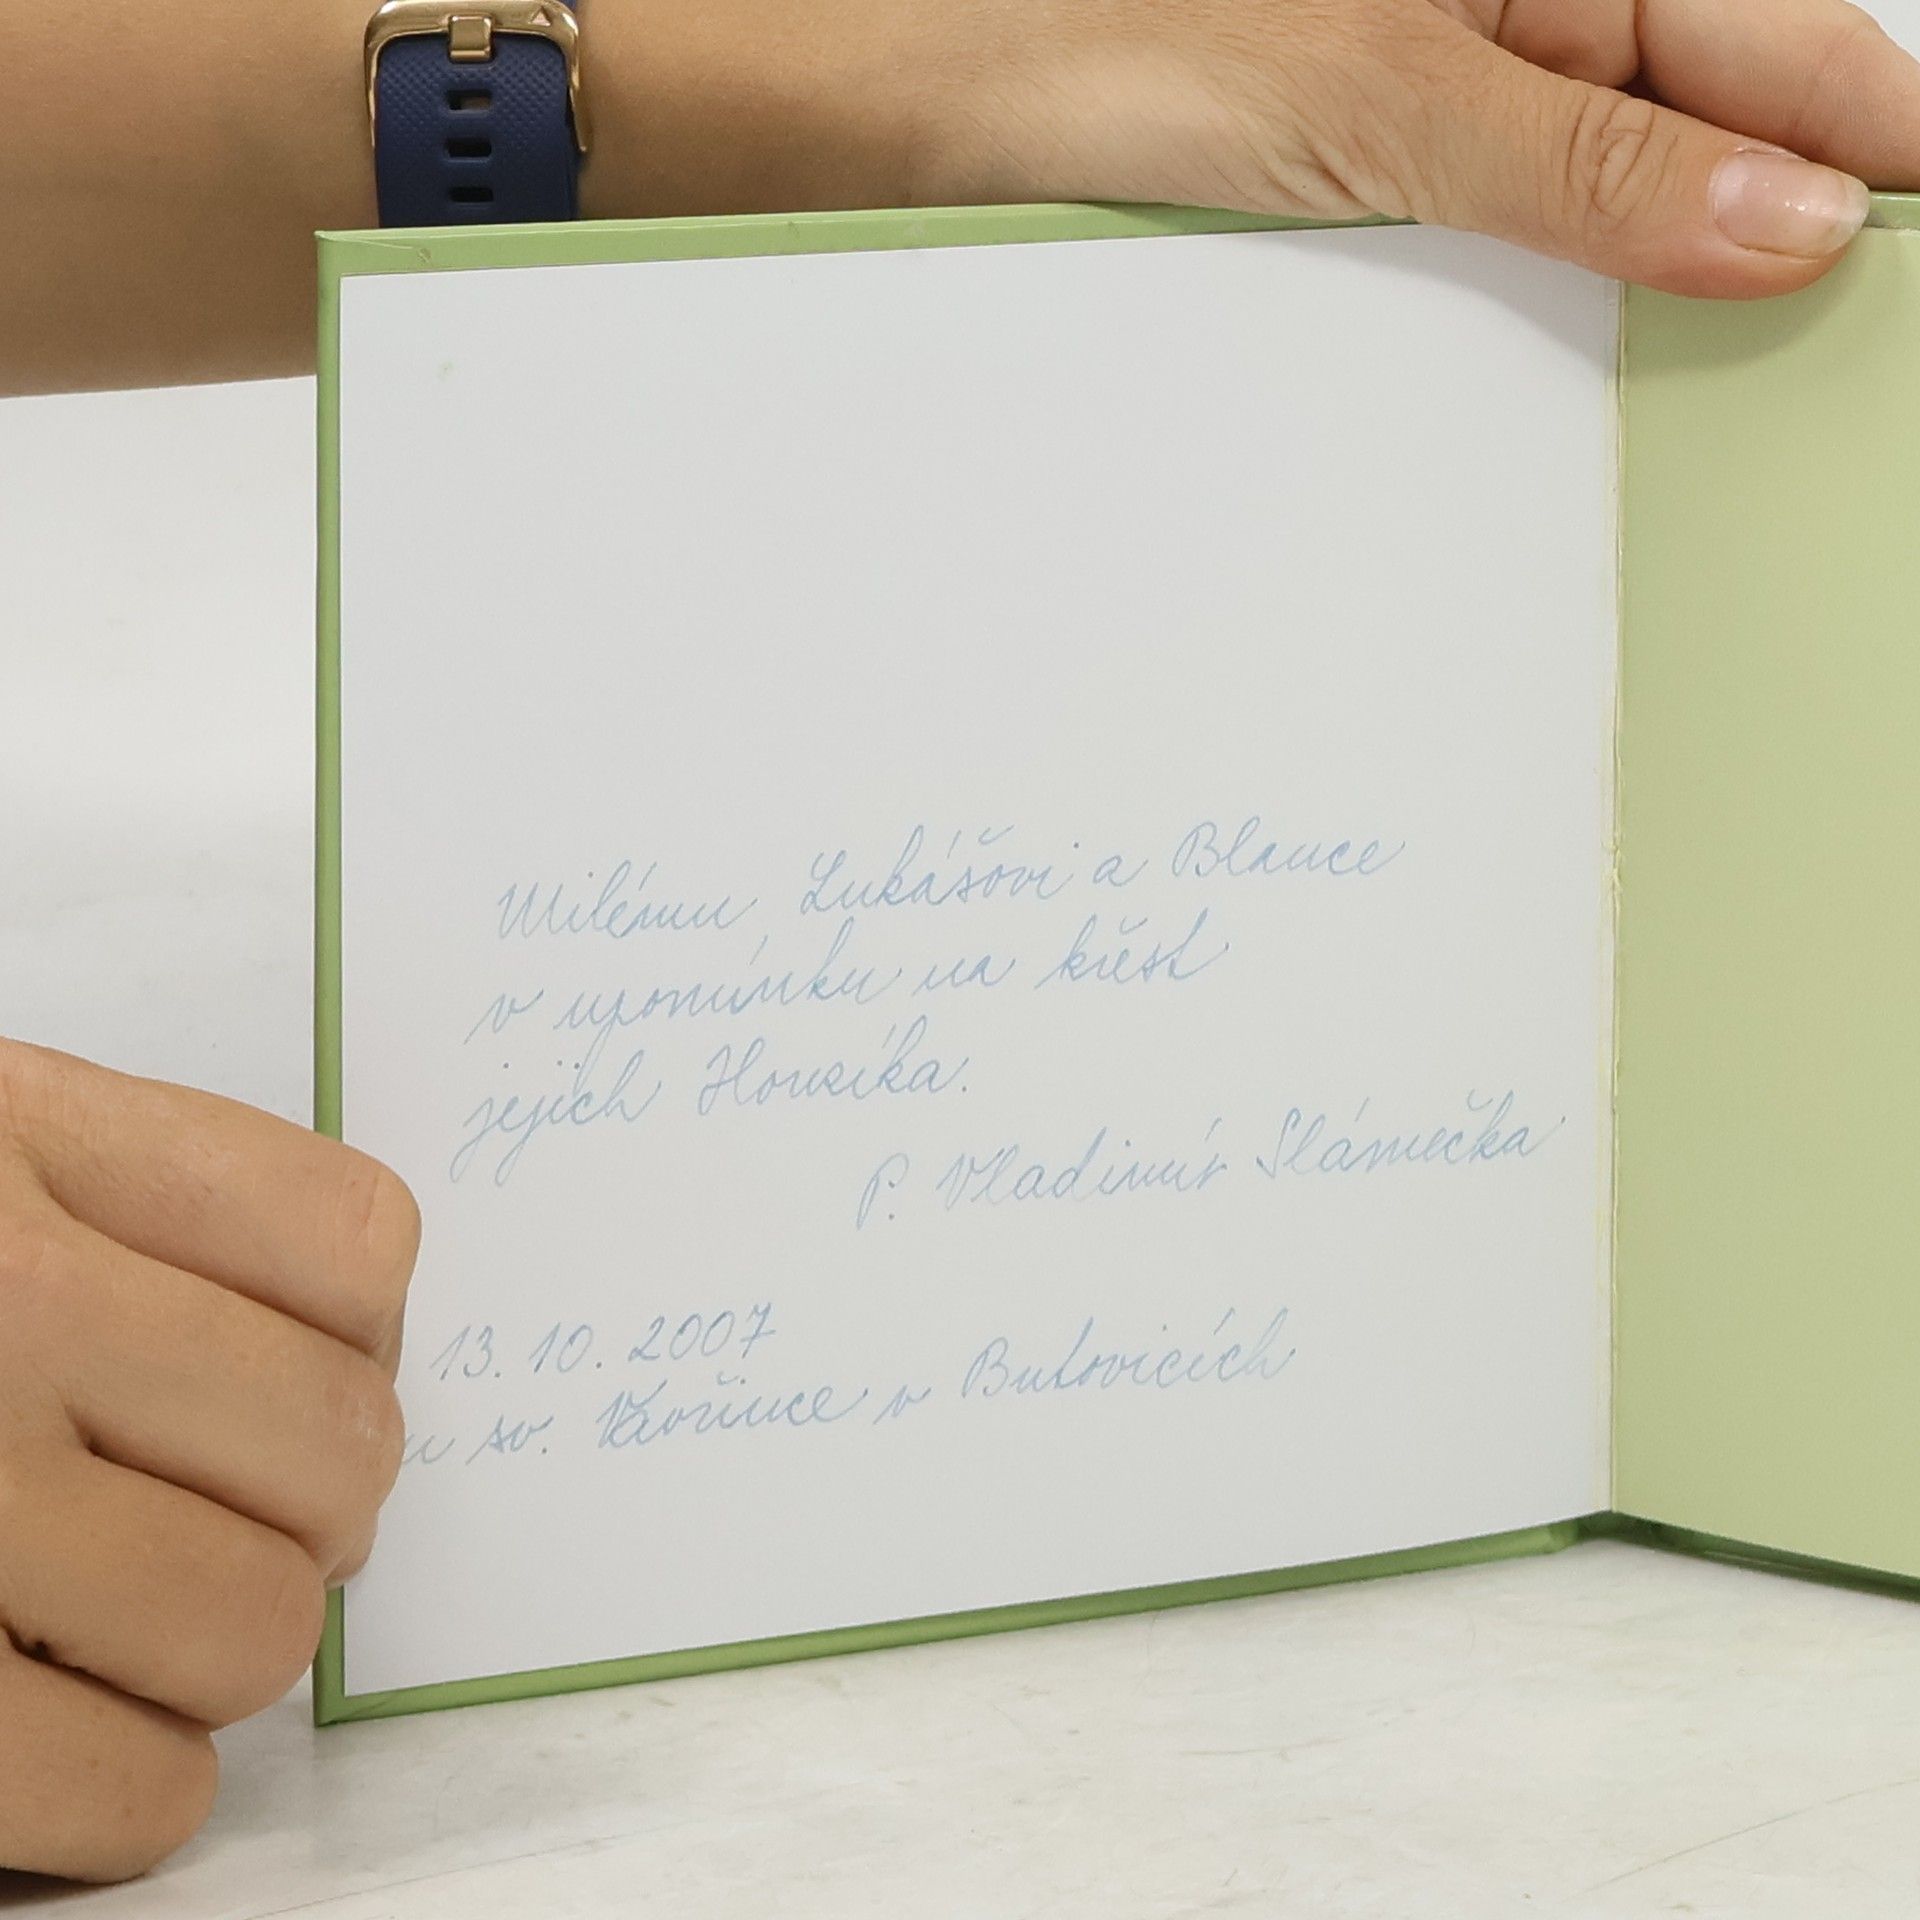 Milému Lukášovi a Blance
v upomínku na křest
jejich Honzíka.
P. Vladimír Slámečka
13. 10. 2007
u sv. Vavřince v Butovicích